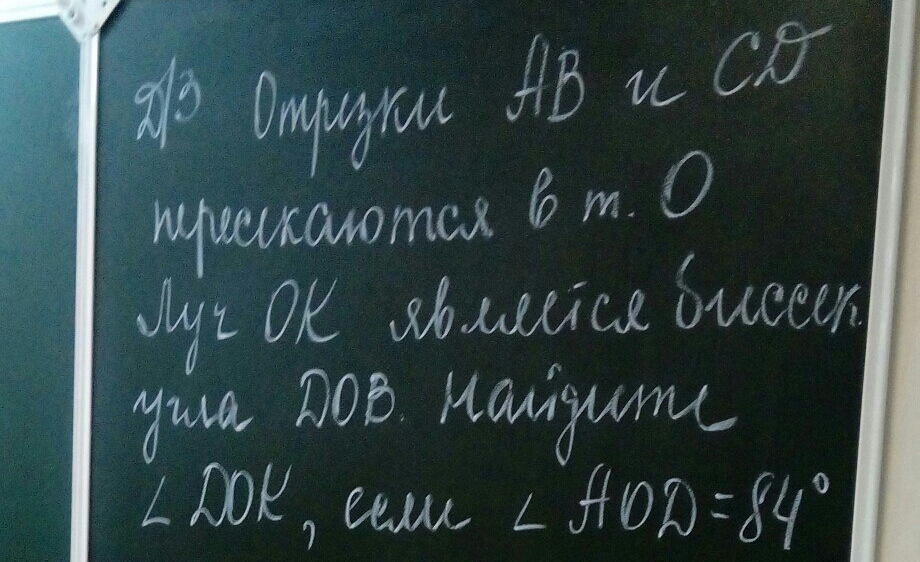 Д/З Отрезки AB и CD
пересекаются в т. О
Луч ОК является биссек.
угла DOB. Найдите
∠ DOK, если ∠ AOD = 84°